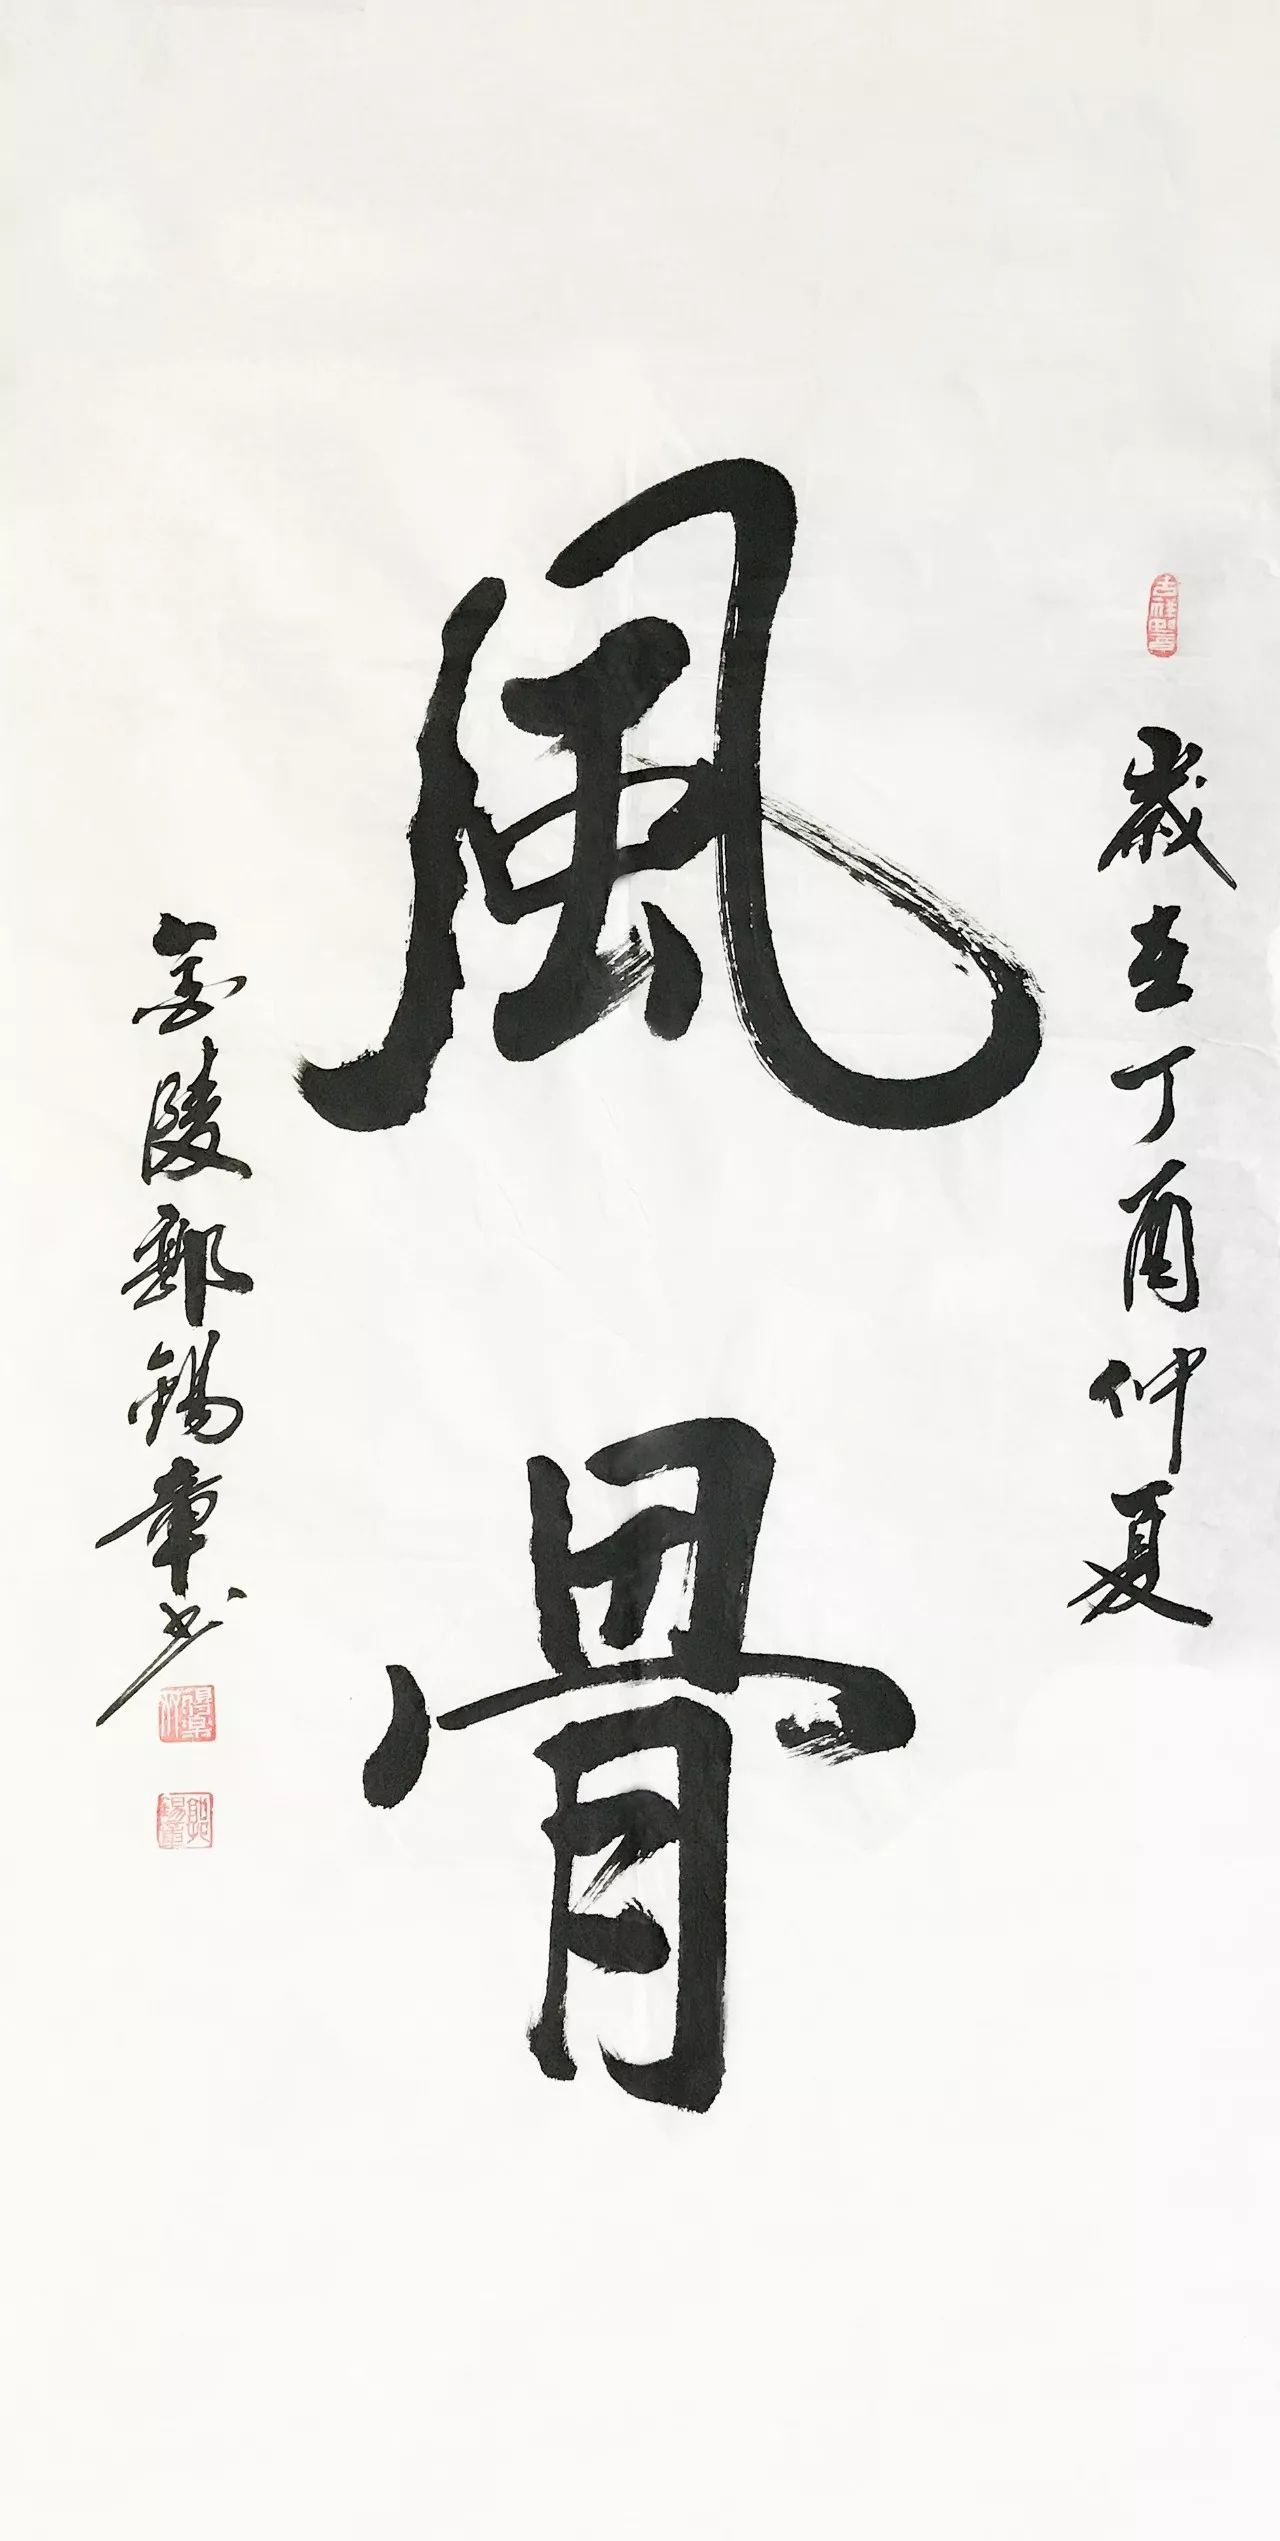 歲在丁酉仲夏
風骨
金陵郭錫章书